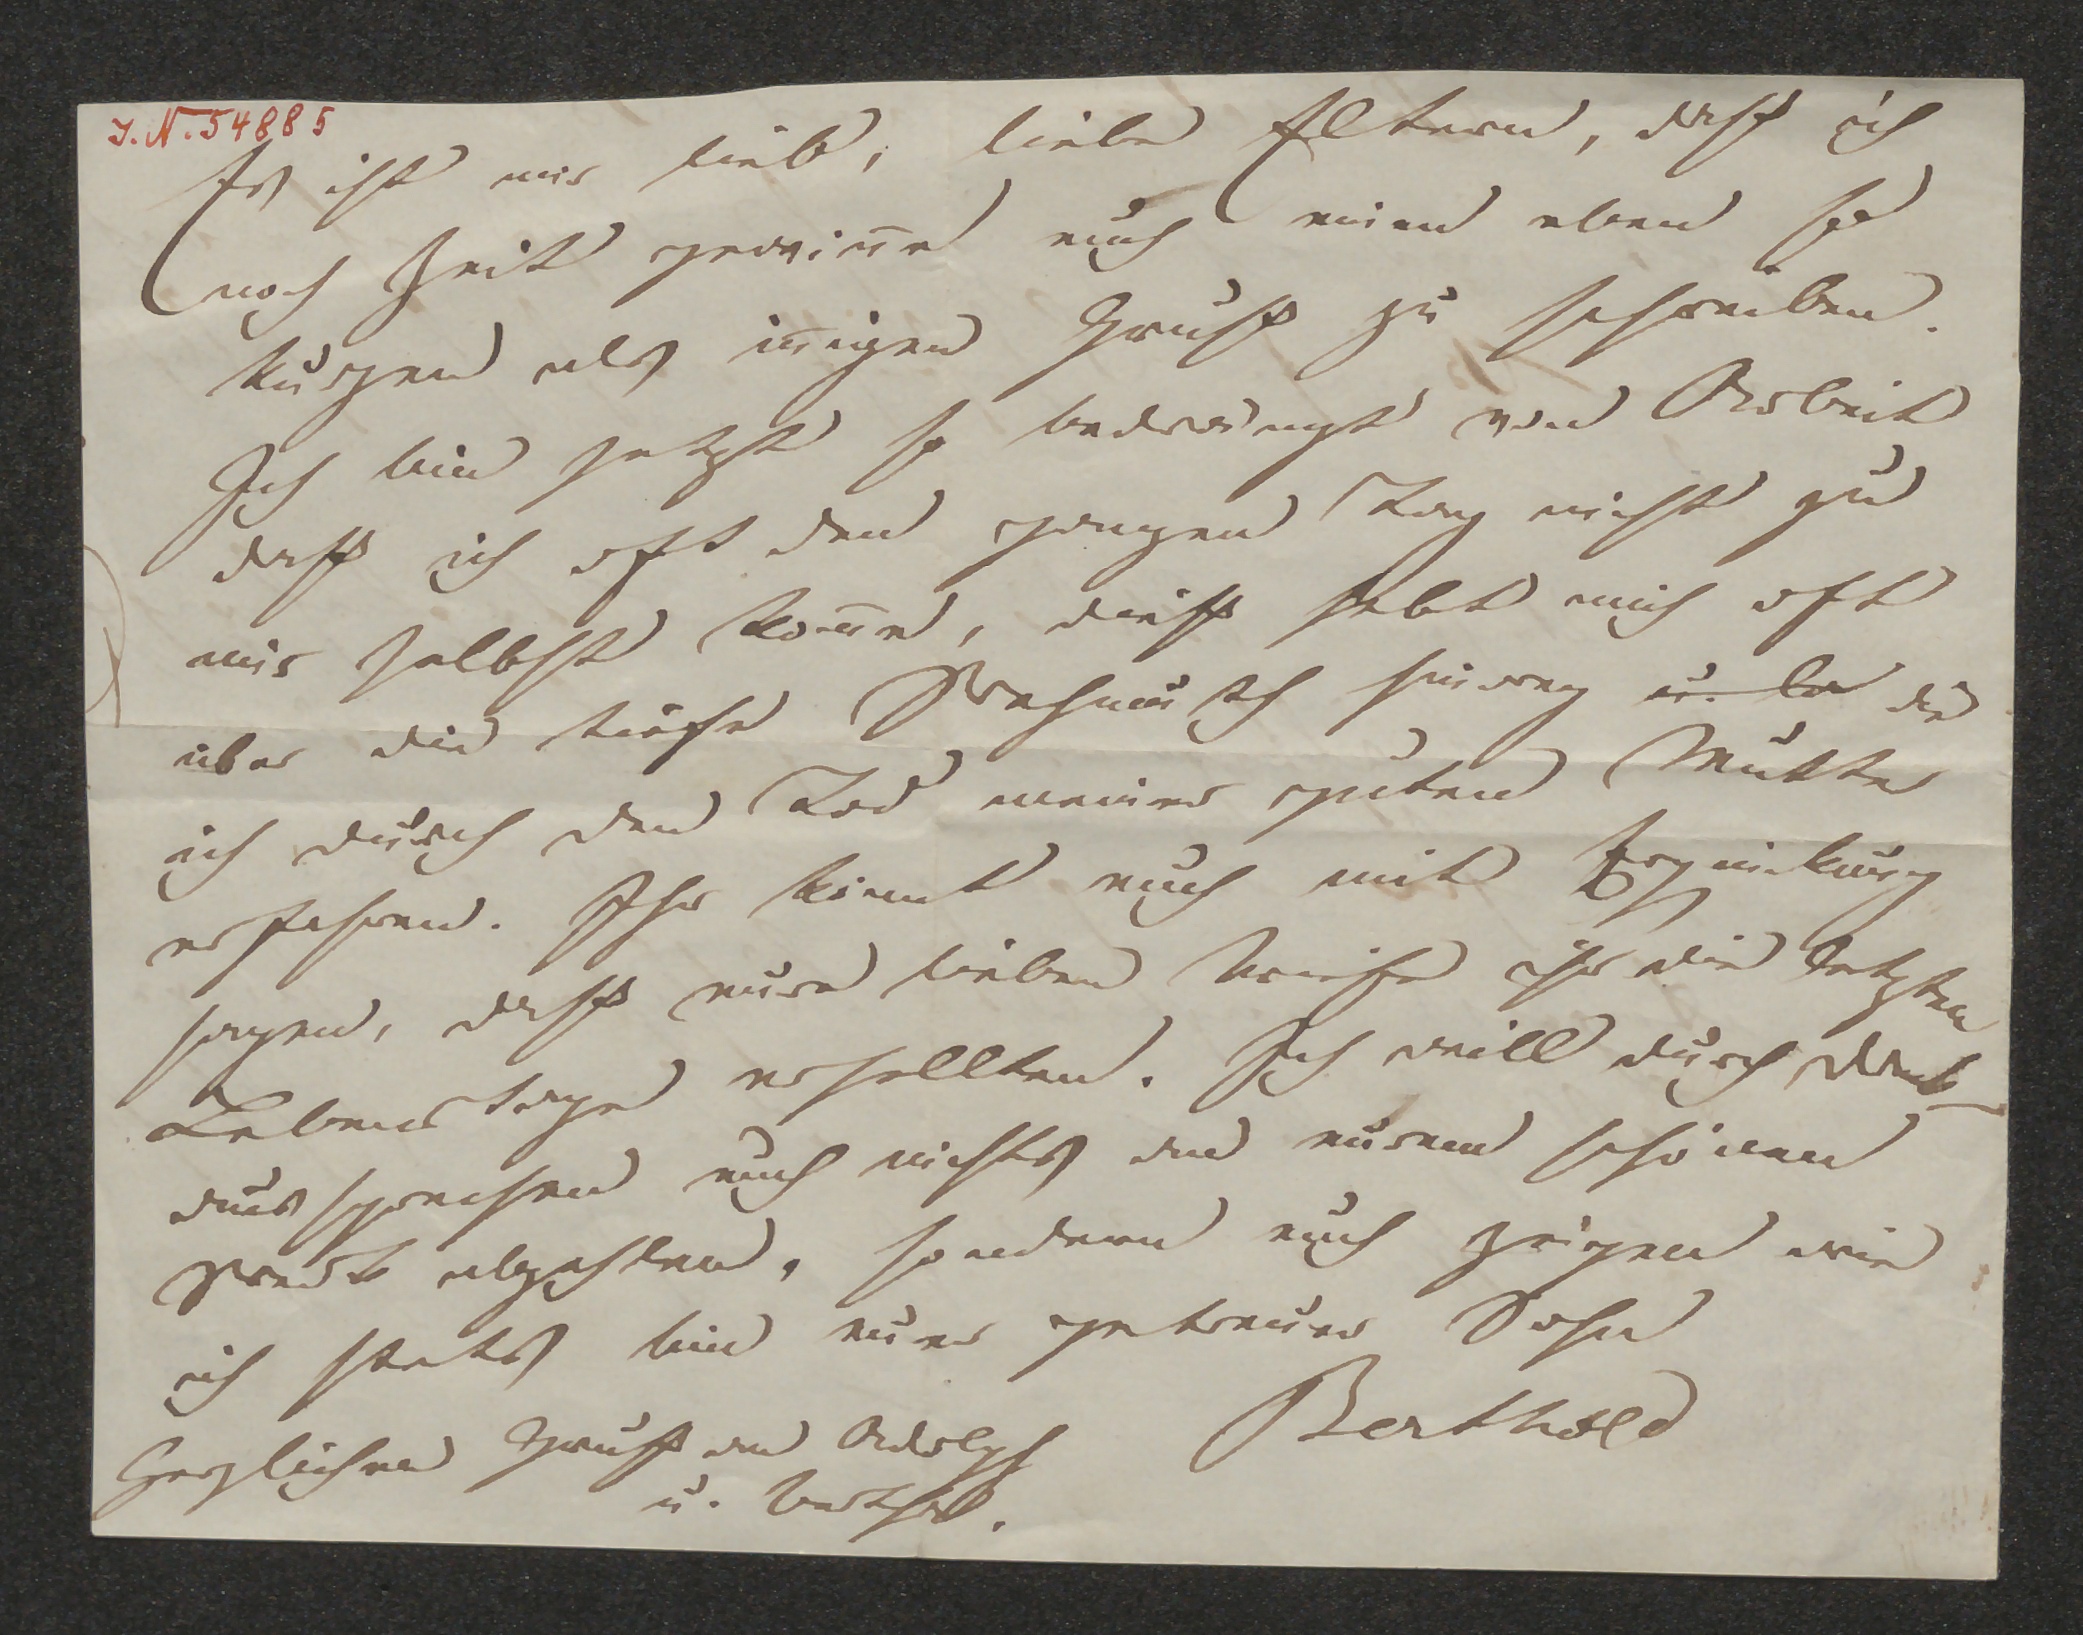 I.N. 54885
Es ist mir lieb, liebe Eltern, daß ich
noch Zeit gewin̅e euch einen eben so
kurzen als in̅igen Gruß zu schreiben.
Ich bin jetzt so bedrängt von Arbeit
daß ich oft den ganzen Tag nicht zu
mir selbst kom̅e, dieß hebt mich oft
über die tiefe Wehmuth hinweg u. die
ich durch den Tod meiner guten Mutter
erfahren. Ihr könnt euch mit Erquickung
sagen, daß eure lieben Briefe ihr die letzten
Lebenstage erhellten. Ich will durch Dank
aussprechen euch nichts an eurem schönen
Werk abzahlen, sondern euch zeigen wie
ich stets bin euer getreuer Sohn
Berthold
Herzlichen Gruß an Adolph
u. Bertha.